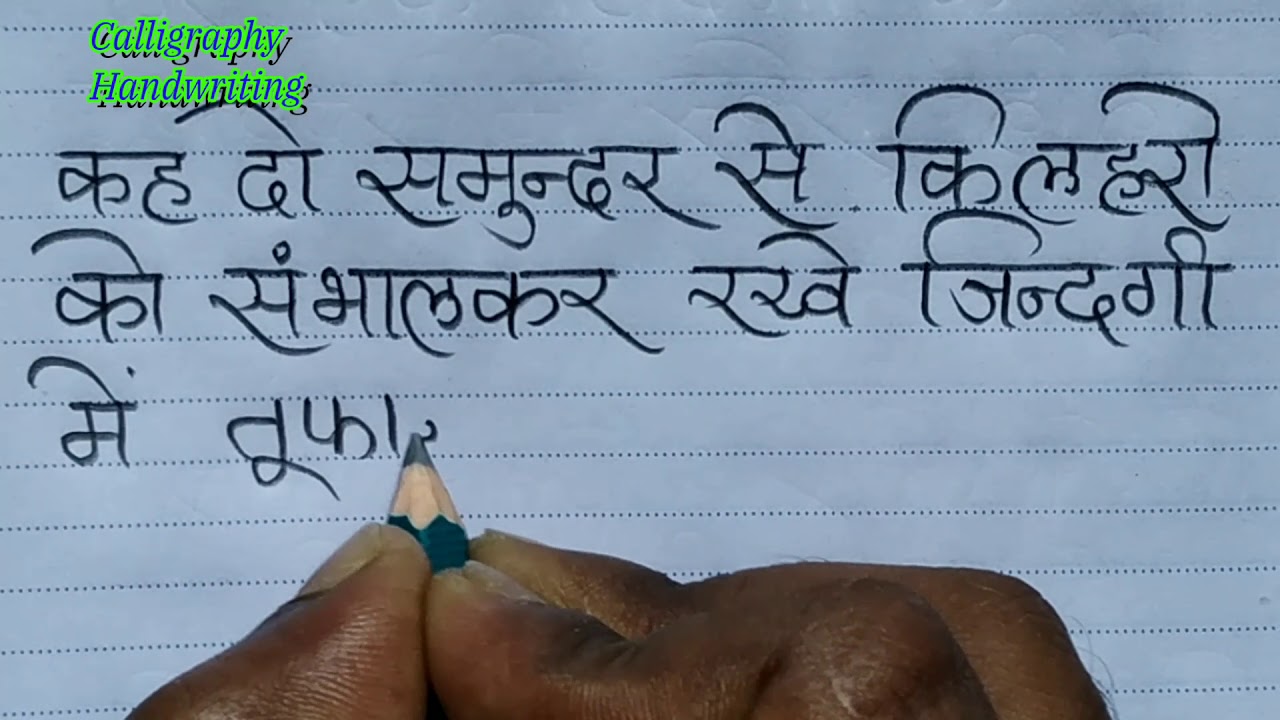 Calligraphy
Handwriting
कह दो समुन्दर से कि लहरो
को संभालकर रखे जिन्दगी
में तूफा